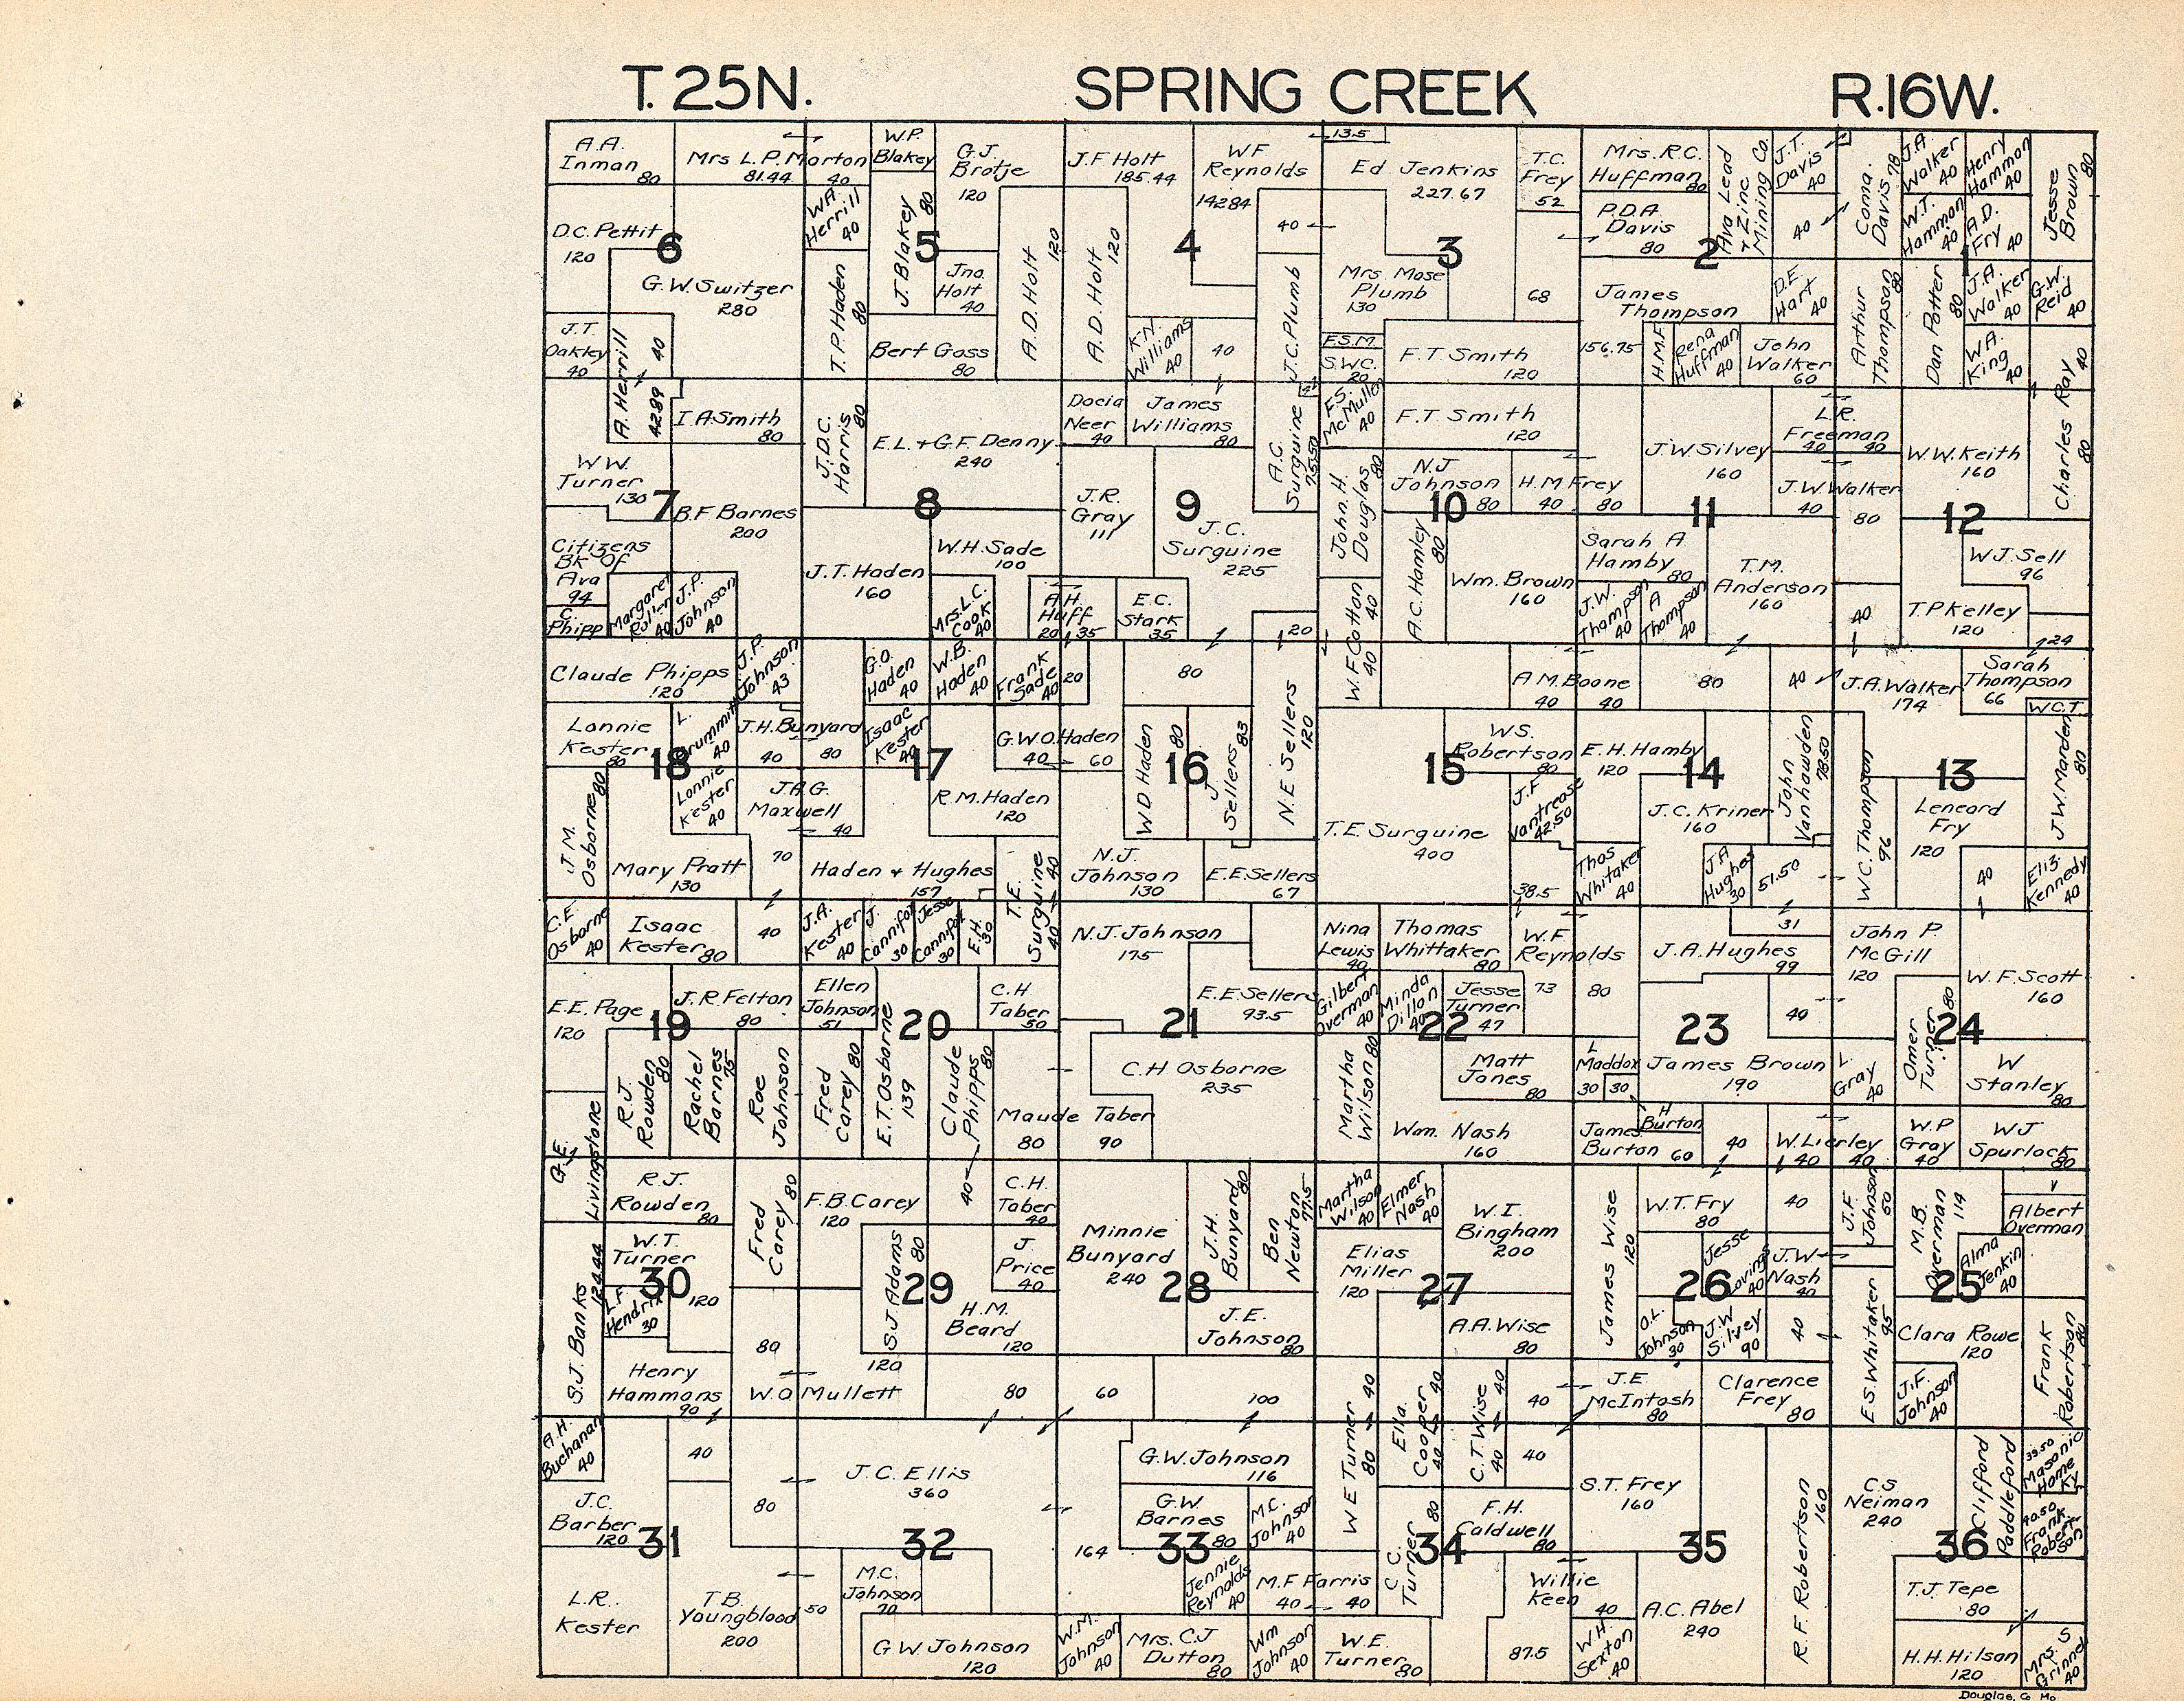 T. 25N.
SPRING CREEK
R.16W.
A.A.
Inman
80
Mrs L.P. Morton
81.44
40
W.P.
Blakey
G.J.
Brotje
120
J.F. Holt
185.44
W F
Reynolds
142.84
13.5
Ed Jenkins
227.67
T.C.
Frey
52
Mrs. R.C.
Huffman
80
Ava Lead
+ Zinc
Mining Co.
J.T.
Davis
40
Coma.
Davis 78
J.A.
Walker
40
Henry
Hammon
40
Jesse
Brown
80
D.C. Pettit
120
6
W.A.
Herrill
40
J. Blakey
80
5
A.D. Holt
120
A.D. Holt
120
4
40
3
P.D.A.
Davis
80
2
40
W.T.
Hammon
40
A.D.
Fry
40
1
G.W. Switzer
280
T.P. Haden
80
Jno.
Holt
40
J.C. Plumb
Mrs. Mose
Plumb
130
68
James
Thompson
156.75
D.E.
Hart
40
Arthur
Thompson
80
Dan Potter
80
J.A.
Walker
40
G.W.
Reid
40
J.T.
Oakley
40
A. Herrill
40
42.89
Bert Goss
80
K.N.
Williams
40
40
F.S.M.
S.W.C.
20
F.T Smith
120
H.M.F.
Rena
Huffman
40
John
Walker
60
W.A.
King
40
Charles Ray
40
80
I.A. Smith
80
J.D.C.
Harris
80
E.L. + G.F. Denny
240
Docia
Neer
40
James
Williams
80
A.C.
Surguine
75.50
F.S.
McMullen
40
F.T. Smith
120
J.W. Silvey
160
L.R.
Freeman
40
40
W.W. Keith
160
W W.
Turner
130
7
B.F. Barnes
200
8
J.R.
Gray
111
9
J.C.
Surguine
225
John. H.
Douglas
80
N.J
Johnson
80
H.M Frey
40
80
10
11
J.W Walker
40
80
12
Citizens
Bk Of
Ava
94
C.
Phipp
Margaret
40
J.P.
Johnson
40
J.T. Haden
160
W.H. Sade
100
Mrs. L.C.
Cook
40
A.H.
Huff
20
35
E.C.
Stark
35
20
W.F Cotton
40
40
A.C. Hamley
80
Wm. Brown
160
Sarah A
Hamby
80
J.W.
Thompson
40
A
Thompson
40
T.M.
Anderson
160
40
W J. Sell
96
T.P Kelley
120
24
Claude Phipps
120
J.P.
Johnson
43
G.O.
Haden
40
W.B.
Haden
40
Frank
Sade
40
20
80
N.E Sellers
120
A M. Boone
40
40
80
40
J.A. Walker
174
Sarah
Thompson
66
W.C.T.
Lonnie
Kester
80
18
L.
40
J.H. Bunyard
40
80
Isaac
Kester
40
17
G.W.O. Haden
40
60
W D Haden
80
16
J
Sellers
83
15
W S.
Robertson
80
E.H. Hamby
120
14
John
Vanhowden
78.50
13
J.W. Marden
80
J.M.
Osborne
80
Lonnie
Kester
40
J.A.G.
Maxwell
40
R.M. Haden
120
T.E Surguine
400
J.F.
Vantrease
42.50
J.C. Kriner
160
W.C. Thompson
96
Leneard
Fry
120
Mary Pratt
130
70
Haden + Hughes
157
T.E.
Surguine
40
40
N.J.
Johnson
130
E.E. Sellers
67
38.5
Thos
Whitaker
40
J.A
Hughes
30
51.50
40
Eliz.
Kennedy
40
C.E.
Osborne
40
Isaac
Kester
80
40
J.A.
Kester
40
J.
Cannifax
30
Jesse
Cannifax
30
E.H.
30
N.J. Johnson
175
Nina
Lewis
40
Thomas
Whittaker
80
W.F
Reynolds
73
80
31
J.A. Hughes
99
John P.
McGill
120
W.F. Scott
160
E.E. Page
120
19
J.R. Felton
80
Ellen
Johnson
51
20
C.H
Taber
50
21
E.E. Sellers
93.5
Gilbert
Overman
40
Minda
Dillon
40
Jesse
Turner
47
22
23
40
Omer
Turner
80
24
R.J.
Rowden
80
Rachel
Barnes
75
Roe
Johnson
Fred
Carey
80
E.T. Osborne
139
Claude
Phipps
80
40
C.H Osborne
235
Maude Taber
80
90
Martha
Wilson
80
Matt
Jones
80
L
Maddox
30
30
James Brown
190
L.
Gray
40
W
Stanley
80
G.E.
Livingstone
Wm. Nash
160
James
Burton
60
H
Burton
40
W. Lierley
40
40
W.P
Gray
40
W J
Spurlock
80
R.J.
Rowden
80
Fred
Carey
80
F.B. Carey
120
C.H.
Taber
40
Minnie
Bunyard
240
J.H.
Bunyard
80
Ben
Newton
77.5
Martha
Wilson
40
Elmer
Nash
40
W.I.
Bingham
200
James Wise
120
W.T. Fry
80
40
J.F.
Johnson
50
M.B.
Overman
114
Albert
Overman
S.J. Banks
124.44
W.T.
Turner
120
30
L.F.
Hendrix
30
S.J Adams
80
120
29
J.
Price
40
28
Elias
Miller
120
27
Jesse
Loving
40
26
J.W
Nash
40
25
Alma
Jenkin
40
H.M.
Beard
120
J.E.
Johnson
80
A.A. Wise
80
O.L.
Johnson
30
J.W
Silvey
90
40
E.S. Whitaker
95
Clara Rowe
120
Frank
Robertson
80
Henry
Hammons
90
80
W.O Mullett
80
60
100
W E Turner
40
80
Ella.
Cooper
40
40
C.T. Wise
40
40
40
J.E.
McIntosh
80
Clarence
Frey
80
J.F.
Johnson
40
A.H.
Buchanan
40
40
J.C. Ellis
360
80
G.W. Johnson
116
40
S.T. Frey
160
R.F. Robertson
160
C.S
Neiman
240
Clifford
Paddleford
39.50
Masonic
Home
Ky.
J.C.
Barber
120
31
32
164
G.W
Barnes
80
33
M.C.
Johnson
40
C.C.
Turner
80
F.H.
Caldwell
80
34
35
36
40.50
Frank
Robert-
son
L.R.
Kester
T.B.
Youngblood
200
50
M.C.
Johnson
70
Jennie
Reynolds
40
M.F Farris
40
40
Willie
Keen
40
A.C. Abel
240
T.J. Tepe
80
G.W Johnson
120
W.M.
Johnson
40
Mrs. C.J
Dutton
80
Wm
Johnson
40
W.E.
Turner
80
87.5
W.H.
Sexton
40
H.H. Hilson
120
Mrs. S
Grinnel
40
Douglas, Co Mo